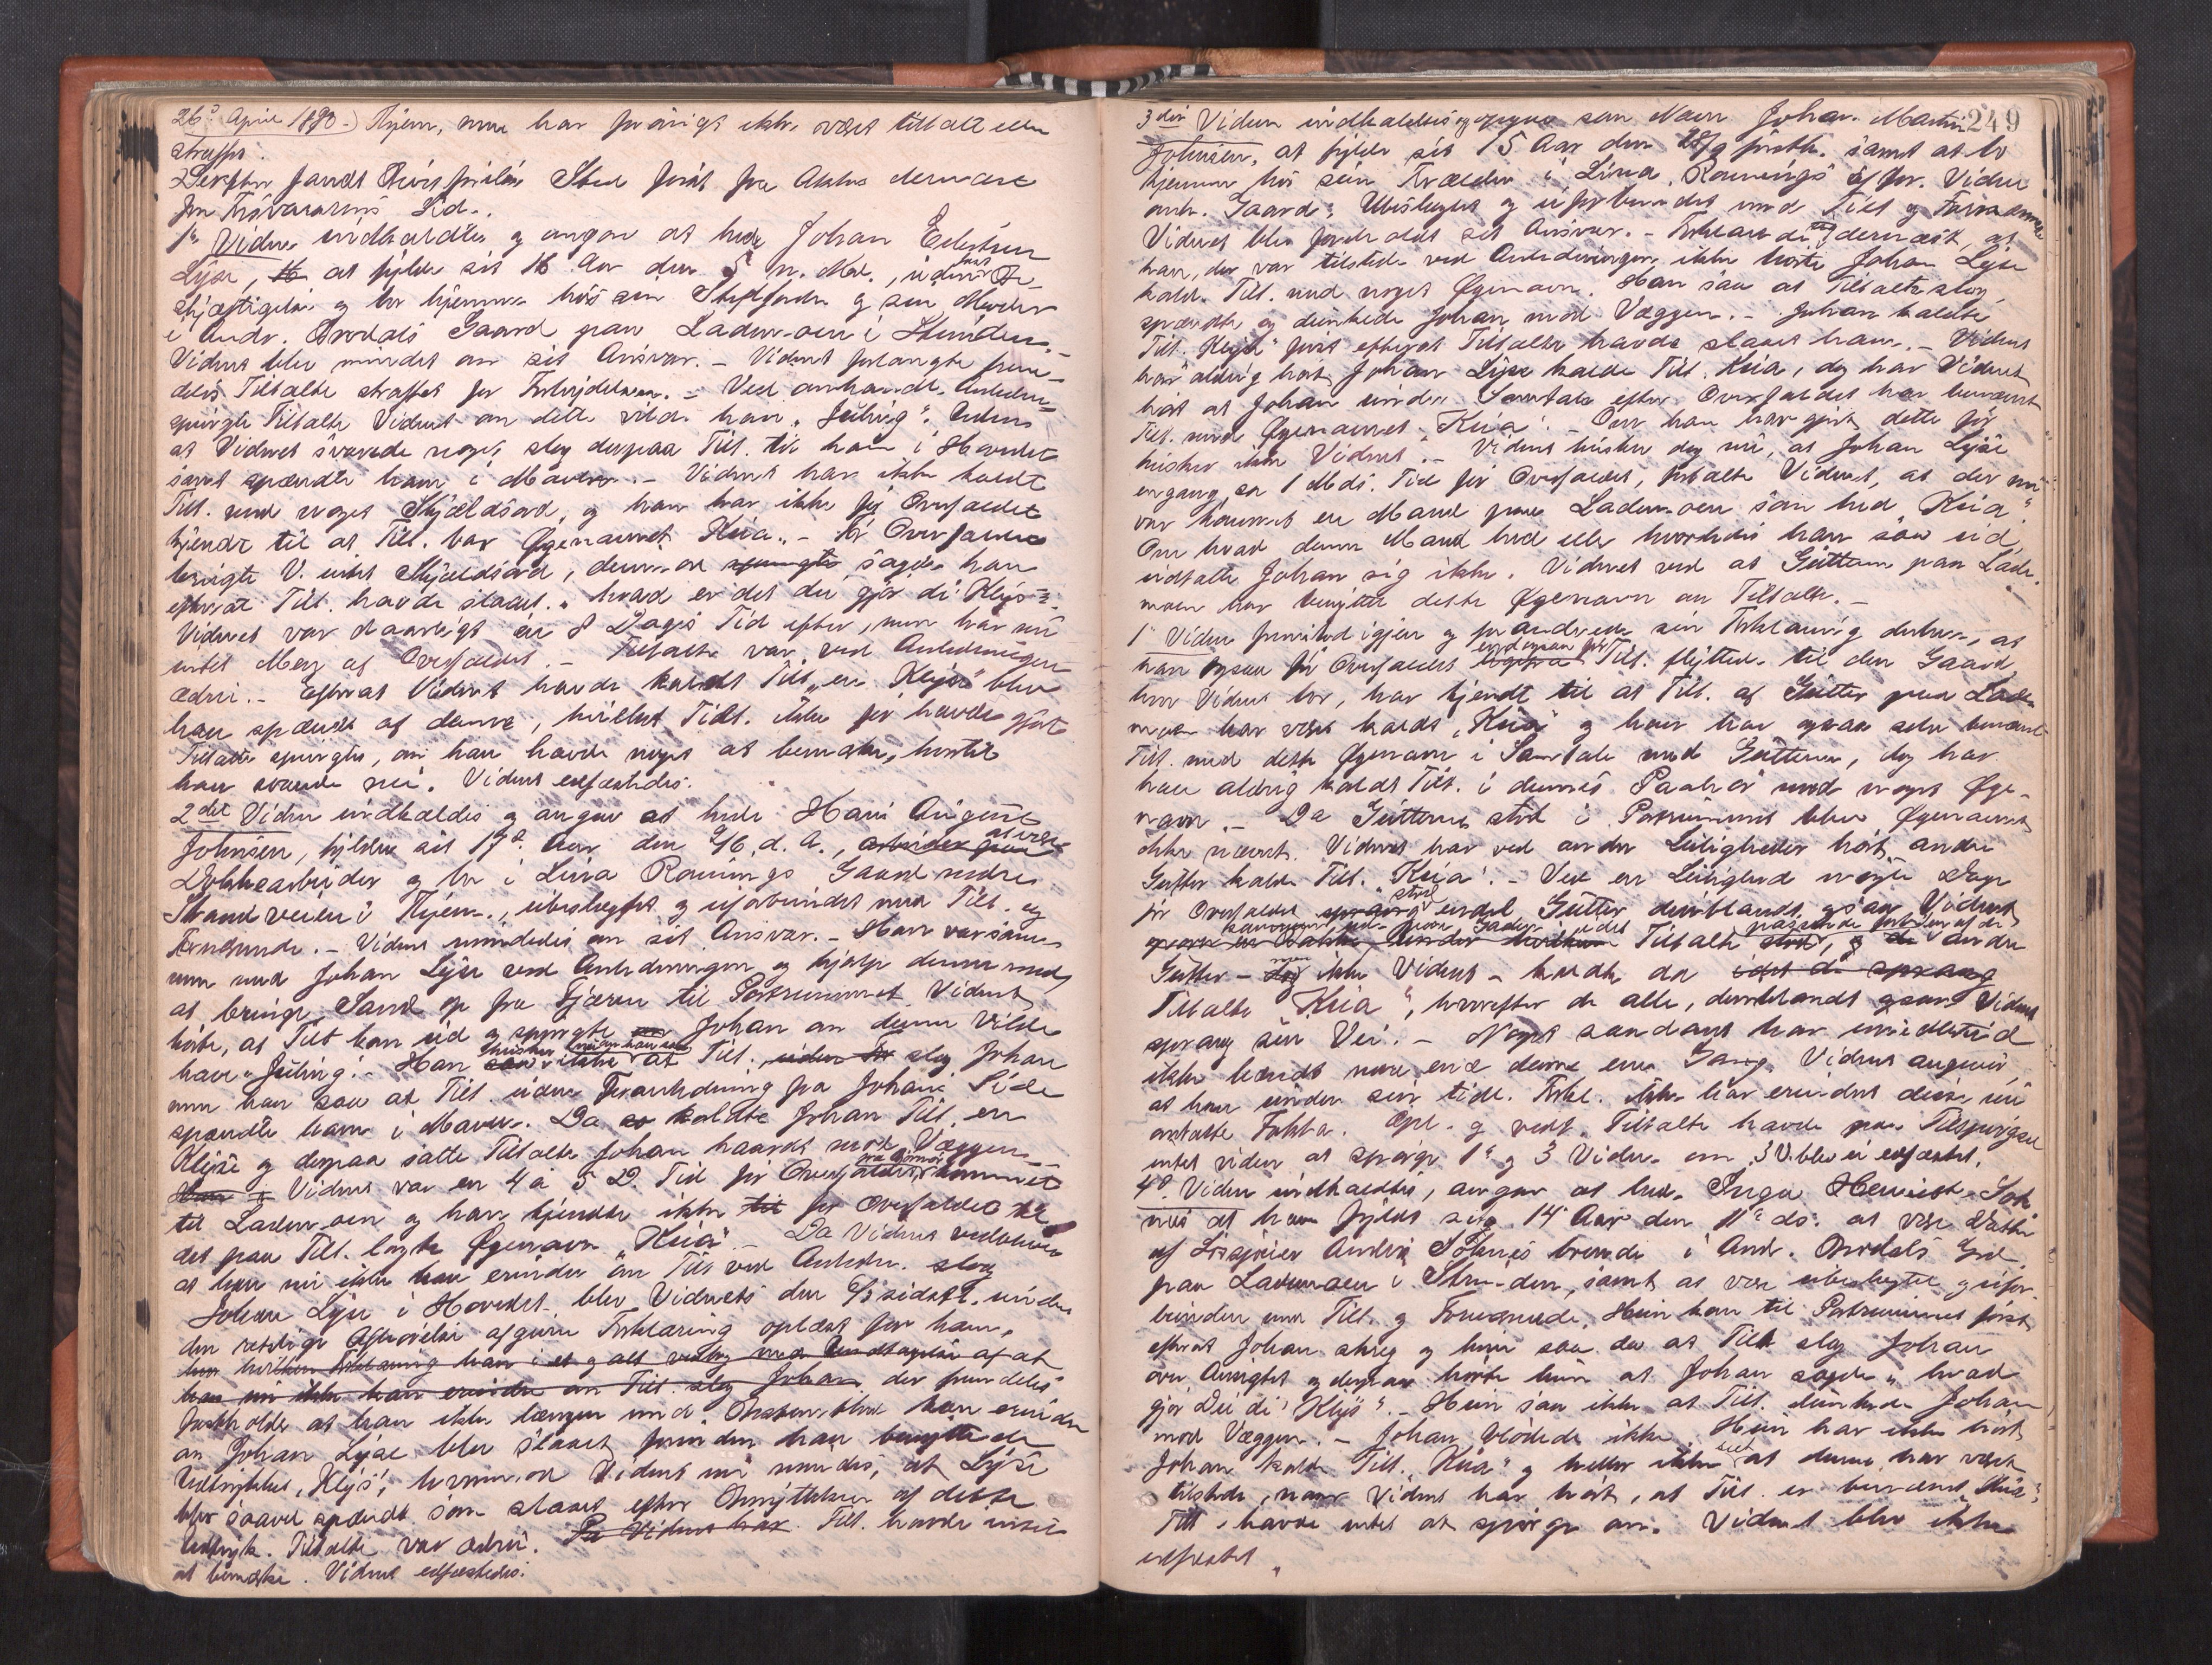 26de April 1890.) Hjem, men har forøvrigt ikke været tiltalt eller
straffet.
Derefter fandt Afhørelse Sted først fra Aktors dernæst
fra Forsvarerens Side.
1ste Vidne indkaldtes og angav at hede Johan Edvardsen
Lysø, at fylde sit 16 Aar den 5 n. Md., uden Be-
skjæftigelse og bor hjemme hos sin Stedfader og sin Moder
i Andr. Orodals Gaard paa Lademoen i Strinden.
Vidnet blev mindet om sit Ansvar. - Vidnet forlangte frem-
deles Tiltalte straffet for Forbrydelsen. - Ved omhandl. Anledn.
spurgte Tiltalte Vidnet om dette vilde have "Juling". Uden
at Vidnet svarede noget, slog derpaa Tilt. til ham i Hovedet
samt spændte ham i Maven. - Vidnet har ikke kaldt
Tilt. med noget Skjældsord, og han har ikke før Overfaldet
kjendt til at Tilt. bar Øgenavnet "Kria". - Før Overfaldet
benyttede V. intet Skjældsord, derimod sagde han
efterat Tilt. havde slaaet "hvad er det du gjør di Klyse".
Vidnet var daarligt en 8 Dages Tid efter, men har nu
intet Men af Overfaldet. - Tiltalte var ved Anledningen
ædru. - Efterat Vidnet havde kaldt Tilt. "en Klyse" blev
han spændt af denne, hvilket Tilt. ikke før havde gjort
Tiltalte spurgtes, om han havde noget at bemærke, hvortil
han svarede nei. Vidnet edfæstedes.
2det Vidne indkaldtes og angav at hede Hans August
Johnsen, fylder sit 17de Aar den 4/6 d. A., at være
Dokkearbeider og bor i Lina Rønnings Gaard nedre
Strandveien i Hjem., ubeslægtet og uforbundet med Tilt. og
Fornærmede. - Vidnet mindedes om sit Ansvar. - Han var sam-
men med Johan Lysø ved Anledningen og hjalp denne med
at bringe Sand op fra Fjæren til Portrummet. Vidnet
hørte, at Tilt. kom ud og spurgte Johan om denne vilde
have "Juling". - Han husker ikke at Tilt. slog Johan
men han saa at Tilt. uden Foranledning fra Johans Side
spændte ham i Maven. Da kaldte Johan Tilt. en
Klyse og derpaa satte Tiltalte Johan haardt mod Væggen.
Vidnet var en 4 a 5 D. Tid før Overfaldet kommet
til Lademoen og han kjendte ikke før Overfaldet til
det paa Tilt. lagte Øgenavn "Kria". - Da Vidnet vedblev
at han nu ikke kan erindre om Tilt. ved Anledn. slog
Johan Lysø i Hovedet, blev Vidnets den 6/3 sidstl. under
den retslige Afhørelse afgivne Forklaring oplæst for ham,
hvilken Forklaring han i et og alt vedtog med Undtagelse af at
han nu ikke kan erindre om Tilt. slog Johan, der fremdeles
fastholder at han ikke længer med Bestemthed kan erindre
om Johan Lysø blev slaaet, forinden han benyttede
Udtrykket, "Klys", hvorimod Vidnet nu mindes, at Lysø
blev saavel spændt som slaaet efter Benyttelsen af dette
Udtryk. Tiltalte var ædru. Da Vidnet har Tilt. havde intet
at bemærke. Vidnet edfæstedes.
249
3die Vidne indkaldtes og opgav sin Navn Johan Martin
Johnsen, at fylde sit 15 Aar den 28/9 førstk. samt at bo
hjemme hos sin Forælder i Lina Rønnings af for. Vidne
omh. Gaard. Ubeslægtet og uforbundet med Tilt. og Fornærmede
Vidnet blev foreholdt sit Ansvar. - Forklarede dernæst, at
han, der var tilstede ved Anledningen, ikke hørte Johan Lysø
kalde Tilt. med noget Øgenavn. Han saa at Tiltalte slog,
spændte og dunkede Johan mod Væggen. - Johan kaldte
Tilt. "Klyse" først efterat Tiltalte havde slaaet ham. - Vidnet
har aldrig hørt Johan Lysø kalde Tilt. Kria, dog har Vidnet
hørt at Johan under Samtale efter Overfaldet har benævnt
Tilt. med Øgenavnet "Kria". - Om han har gjort dette før
husker ikke Vidnet. - Vidnet husker dog nu, at Johan Lysø
engang, ca 1 Mds. Tid før Overfaldet, fortalte Vidnet, at der nu
var kommet en Mand paa Lademoen som hed "Kria".
Om hvad denne Mand hed eller hvorledes han saa ud
udtalte Johan sig ikke. Vidnet ved at Gutterne paa Lade-
moen har benyttet dette Øgenavn om Tiltalte. -
1ste Vidne fremstod igjen og forandrede sin Forklaring derhen, at
han ogsaa før Overfaldet Tilt. flyttede til den Gaard
hvor Vidnet bor, har kjendt til at Tilt. af Gutter paa Lade-
moen har været kaldt "Kria" og han har ogsaa selv benævnt
Tilt. med dette Øgenavn i Samtale med Gutterne, dog har
han aldrig kaldt Tilt. i dennes Paahør med noget Øge-
navn. - Da Gutterne stod i Portrummet blev Øgenavnet
ikke nævnt. Vidnet har ved andre Leiligheder hørt andre
Gutter kalde Tilt. "Kria". - Ved en Leilighed nogle Dage
før Overfaldet stod endel Gutter deriblandt ogsaa Vidnet
Tiltalte passerede forbi og andre
Gutter - men ikke Vidnet - kaldte da idet de sprang
Tiltalte "Kria", hvorefter de alle, deriblandt ogsaa Vidnet
sprang sin Vei. - Noget saadant har imidlertid
ikke hændt mere end denne ene Gang. Vidnet angiver,
at han under sin tidl. Forkl. ikke har erindret disse nu
omtalte Fakta. Opl. og vedt. Tiltalte havde paa Tilspørgsel
intet videre at spørge 1ste og 3 Vidne om. 3 V. blev ei edfæstet.
4de Vidne indkaldtes, angav at hede Inga Henriette Sok
næs at have fyldt sig 14 Aar den 11te ds. at være Datter
af Losseier Andreas Soknes boende i And. Orodals Grd
paa Lademoen i Strinden, samt at være ubeslægtet og ufor-
bunden med Tilt. og Fornærmede. Hun kom til Portrummet først
efterat Johan skreg og hun saa da at Tilt. slog Johan
over Ansigtet og derpaa hørte hun at Johan sagde "hvad
gjør Du di Klys". - Hun saa ikke at Tilt. dunkede Johan
mod Væggen. - Johan blødede ikke. Hun har ikke hørt
Johan kalde Tilt. "Kria" og heller ikke seet at denne har været
tilstede, naar Vidnet har hørt, at Tilt. er benævnt "Kria".
Tilt. havde intet at spørge om. Vidnet blev ikke
edfæstet.